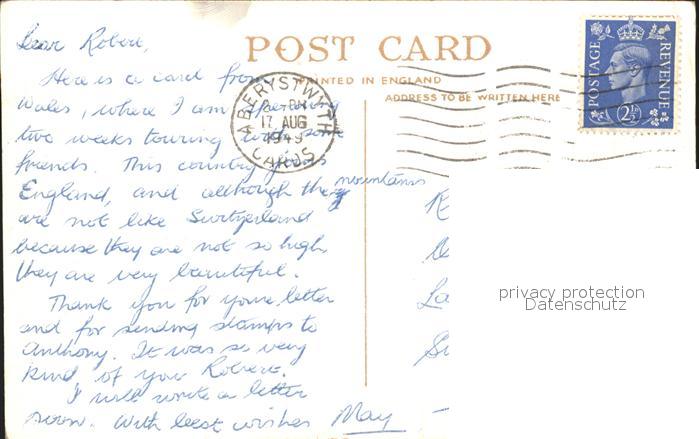 Dear Robert,
Here is a card from
Wales, where I am spending
two weeks touring with some
friends. This country joins
England, and although the mountains
are not like Switzerland
because they are not so high,
they are very beautiful.
Thank you for your letter
and for sending stamps to
Anthony. It was so very
kind of you Robert.
I will write a letter
soon. With best wishes May
POST CARD
PRINTED IN ENGLAND
ADDRESS TO BE WRITTEN HERE
ABERYSTWYTH
PM
17 AUG
1949
CARDS
POSTAGE
REVENUE
2½D
La
privacy protection
Datenschutz